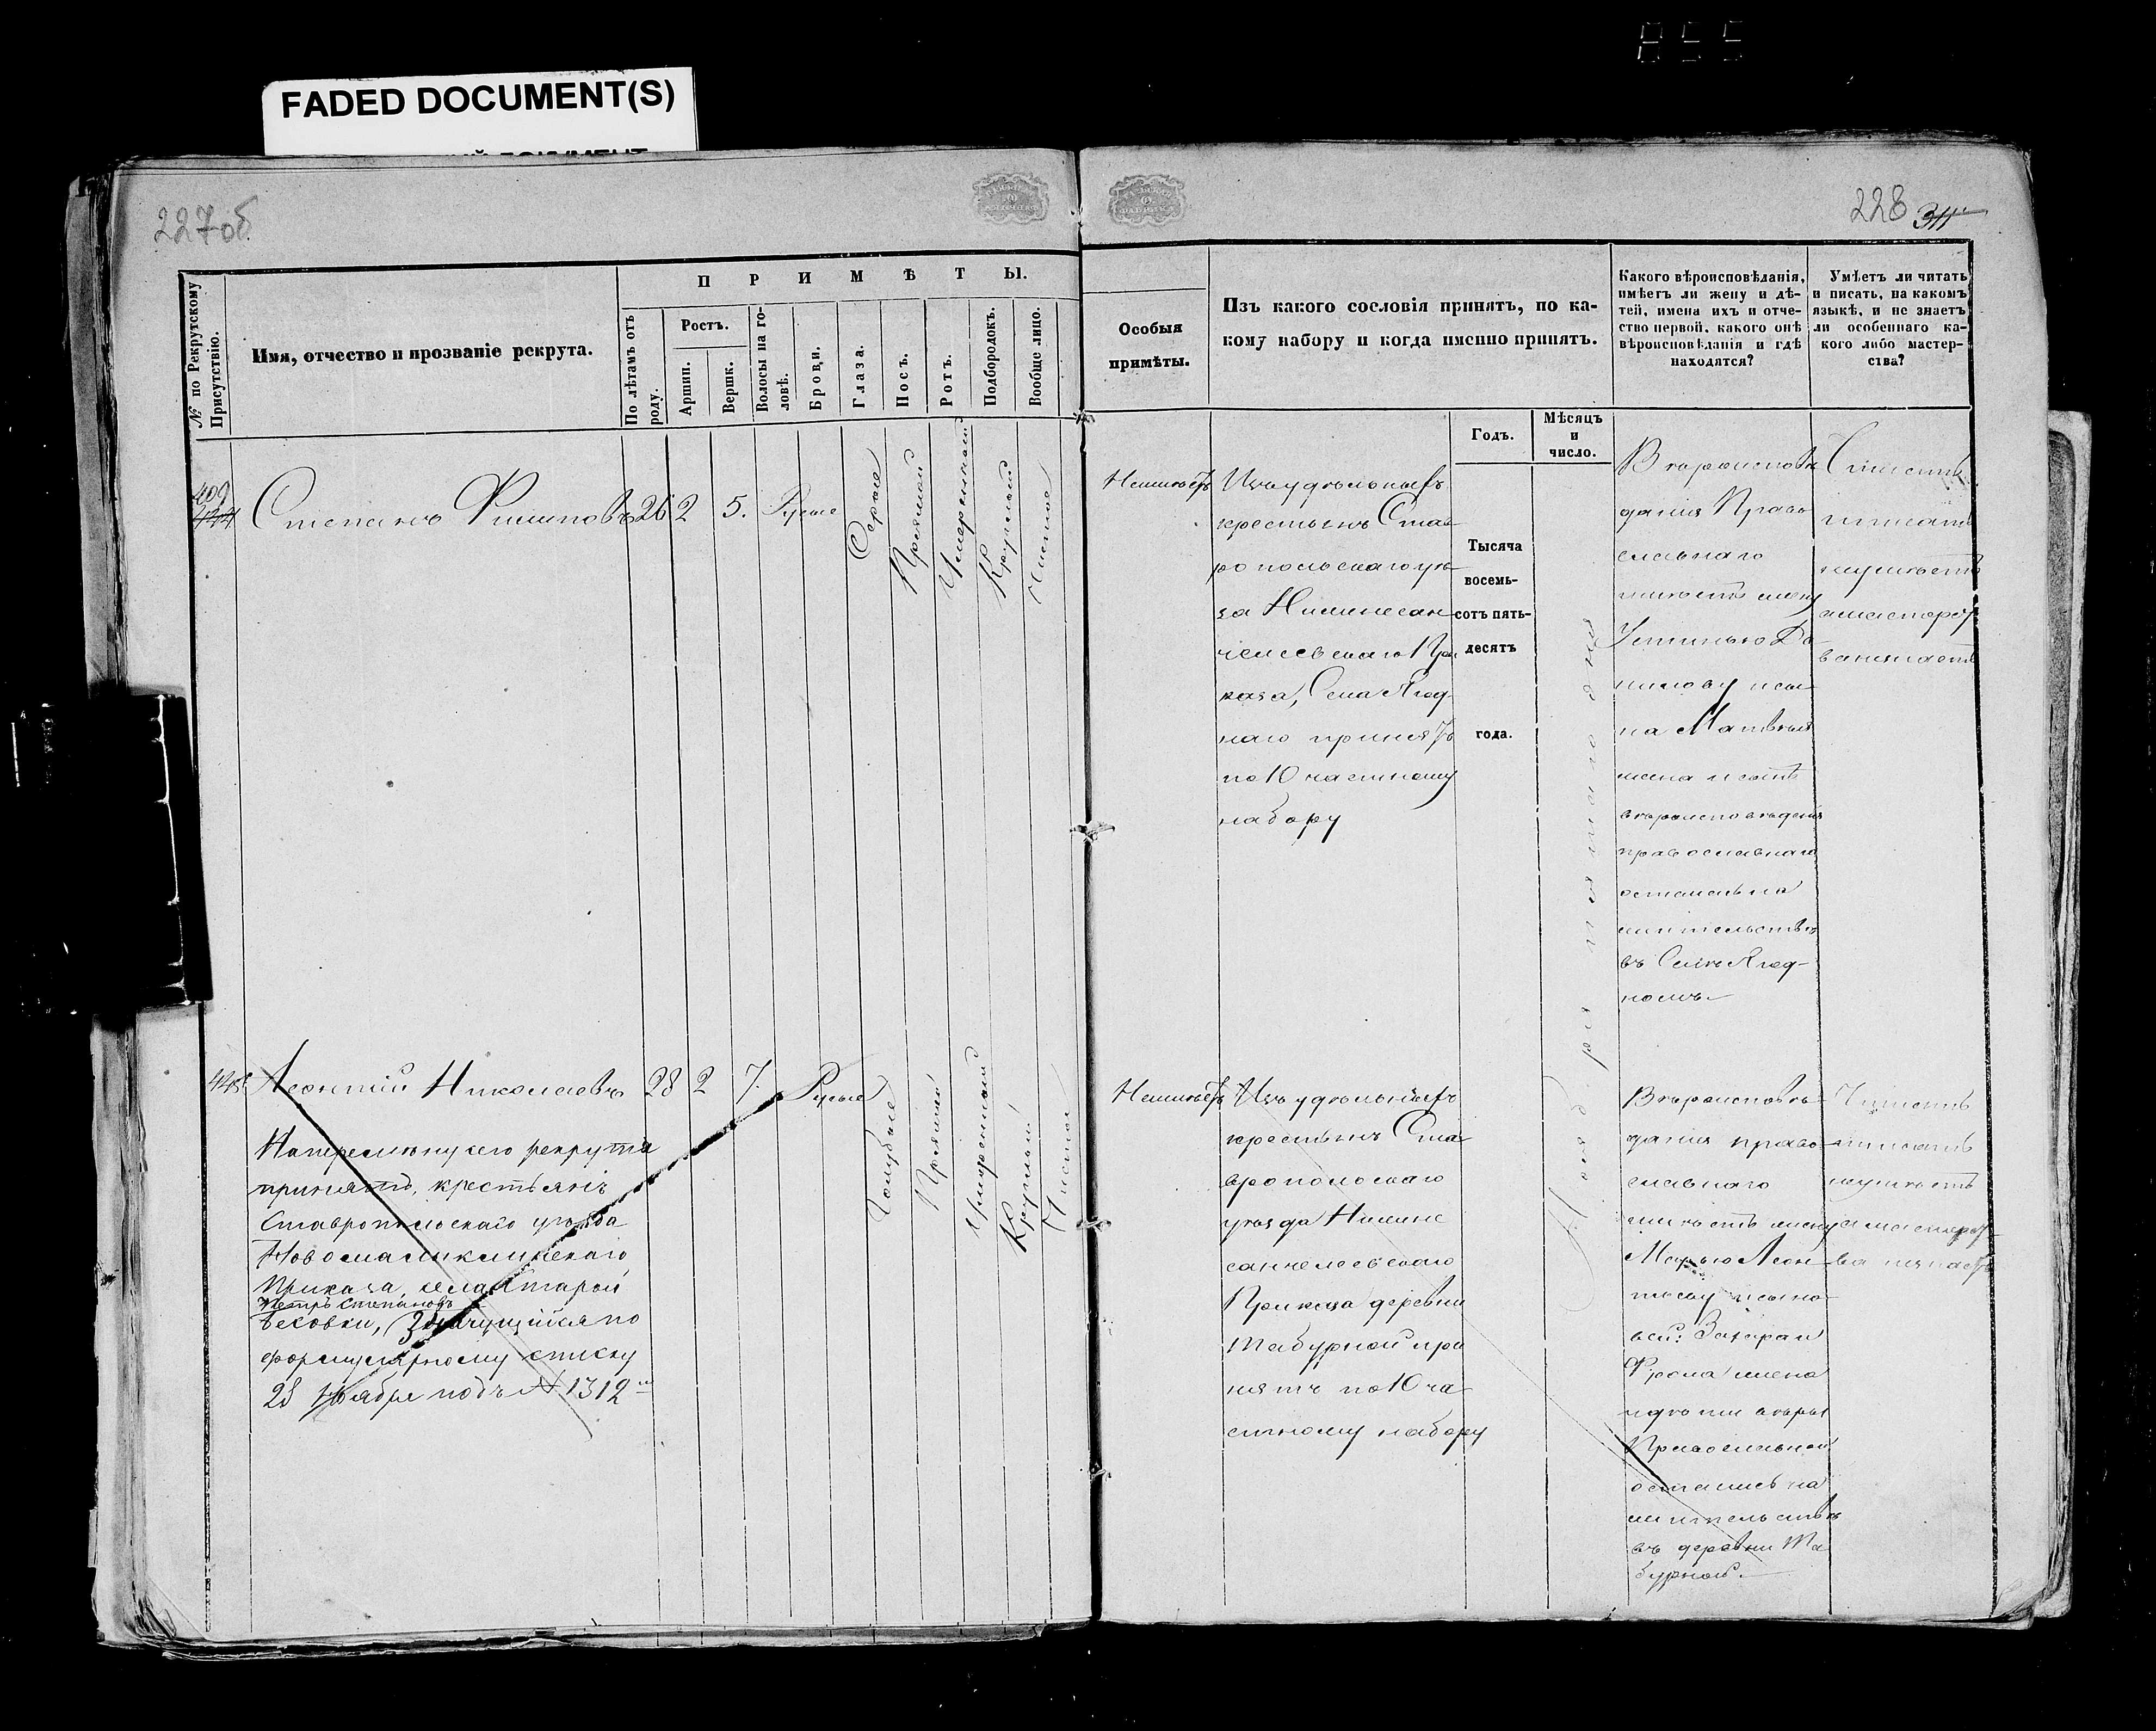 855
FADED DOCUMENT(S)
227об
228 311
№ по Рекрутскому Присутствію.
Имя, отчество и прозваніе рекрута.
ПРИМѢТЫ.
По лѣтамъ отъ роду.
Ростъ.
Аршин.
Вершк.
Волосы на головѣ.
Брови.
Глаза.
Носъ.
Ротъ.
Подбородокъ.
Вообще лицо.
Особыя
примѣты.
Изъ какого сословія принятъ, по ка-
кому набору и когда именно принятъ.
Годъ.
Мѣсяцъ
и
число.
Какого вѣроисповѣданія,
имѣетъ ли жену и дѣ-
тей, имена ихъ и отче-
ство первой, какого онѣ
вѣроисповѣданія и гдѣ
находятся?
Умѣетъ ли читать
и писать, на какомъ
языкѣ, и не знаетъ
ли особеннаго ка-
кого либо мастер-
ства?
409
Степанъ Филиповъ 26 2 5. Русые
Серые
Прямой
Умеренный
Круглый
Чистое
Неимѣетъ
Изъ удѣльныхъ
крестьянъ Став
ропольскаго уѣ
за Нижнесан
челеевскаго При
каза, Села Ягод
наго принятъ
по 10 частному
набору
Тысяча
восемь-
сотъ пять-
десятъ
года.
Ноября пятаго дня
Вѣроисповѣ
данія Право
славнаго
имѣетъ жену
Устинью Да
нилову и сы
на Матвѣя
жена и сынъ
вѣроисповѣденія
православнаго
остались на
жительствѣ
въ Селѣ Ягод-
номъ.
Читать
писать
неумѣетъ
а мастерст
ва незнаетъ
Леонтій Николаевъ 28 2 7. Русые
Голубые
Прямой
Умеренный
Круглый
Чистое
Наперемѣну сего рекрута
принятъ, крестьянъ
Ставропольскаго уѣзда
Новомаликлинскаго
Приказа, села Старой
Петръ Степановъ
Бесовки, Значущійся по
формулярному списку
28 Ноября подъ № 1312
Неимѣетъ
Изъ удѣльныхъ
крестьянъ Ста
вропольскаго
уѣзда Нижне
санчелеевскаго
Приказа деревни
Табурной при
нятъ по 10 ча
стному набору
Вѣроисповѣ
данія право
славнаго
имѣетъ жену
Марью Леон
тьеву и сыно
вей: Захара и
Фрола жена
и дѣти вѣры
Православной
остались на
жительствѣ
въ деревни Та
бурной.
Читать
писать
неумѣетъ
а мастерст
ва незнаетъ